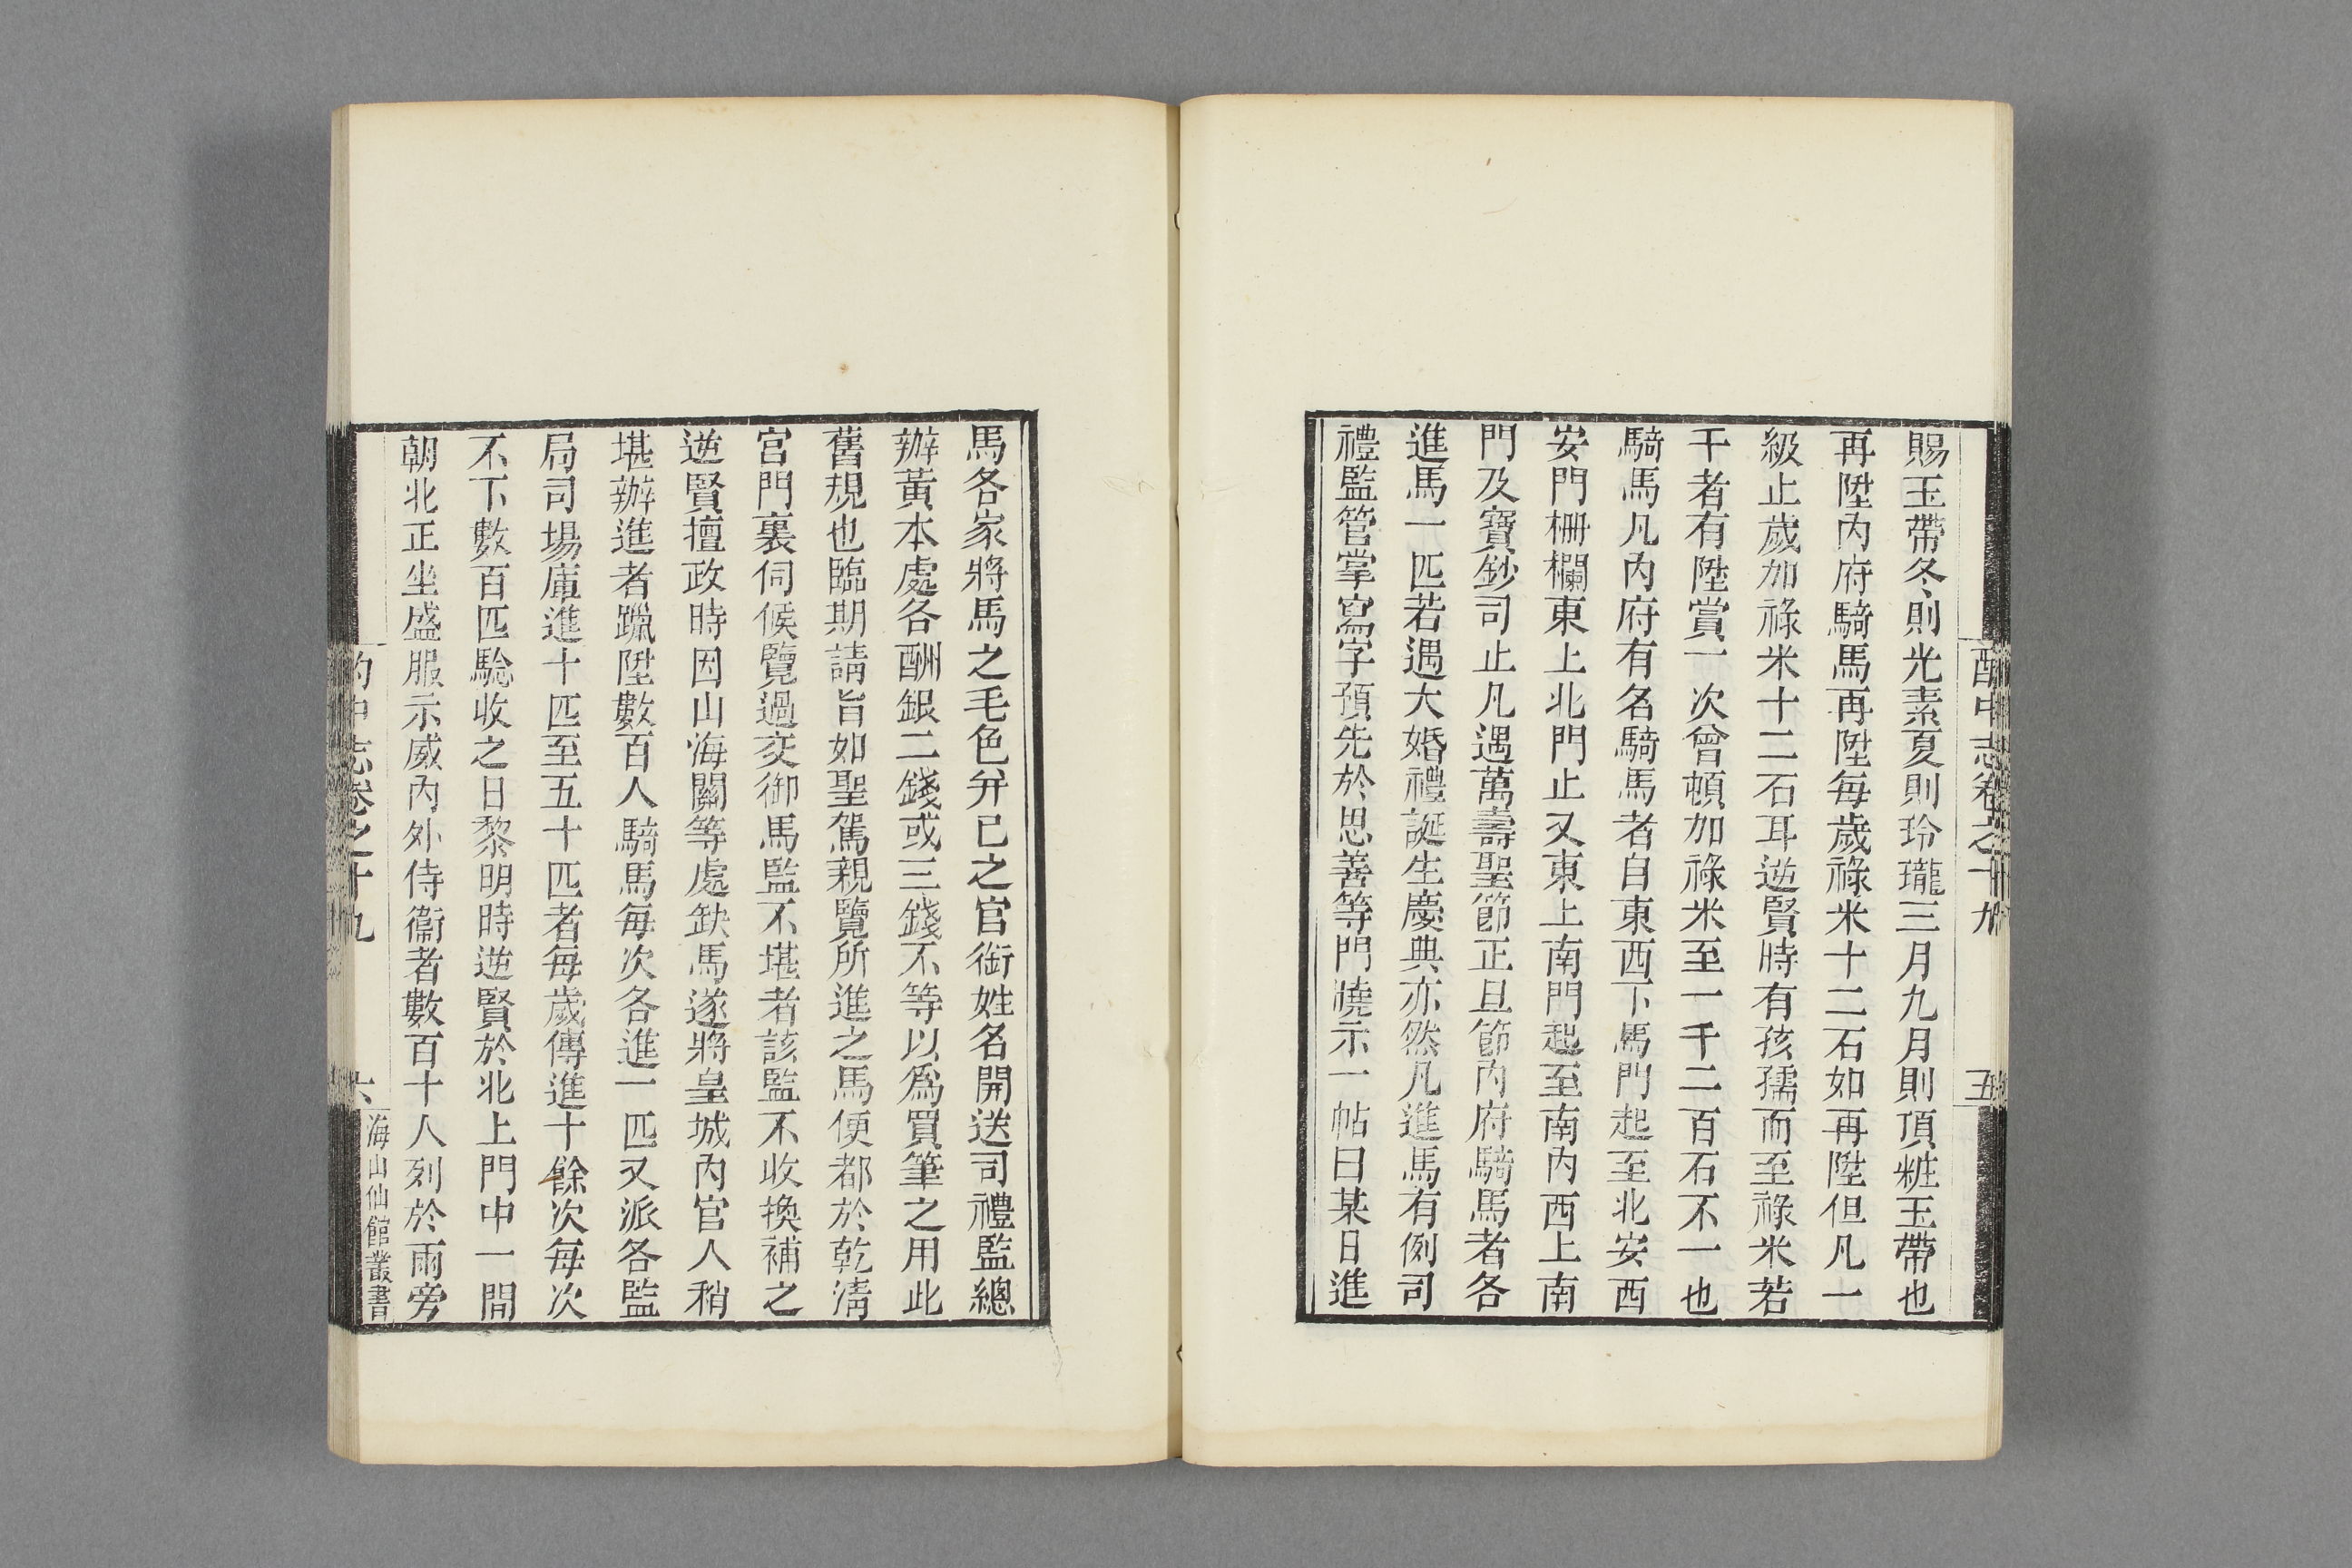 酌中志卷之十九
五
賜玉帶冬則光素夏則玲瓏三月九月則頂粧玉帶也
再陞內府騎馬再陞每歲祿米十二石如再陞但凡一
級止歲加祿米十二石耳逆賢時有孩孺而至祿米若
干者有陞賞一次曾頓加祿米至一千二百石不一也
騎馬凡內府有名騎馬者自東西下馬門起至北安西
安門柵欄東上北門止又東上南門起至南內西上南
門及寶鈔司止凡遇萬壽聖節正旦節內府騎馬者各
進馬一匹若遇大婚禮誕生慶典亦然凡進馬有例司
禮監管掌寫字預先於思善等門曉示一帖曰某日進
馬各家將馬之毛色弁已之官銜姓名開送司禮監總
辦黃本處各酬銀二錢或三錢不等以為買筆之用此
舊規也臨期請旨如聖駕親覽所進之馬便都於乾清
宮門裏伺候覽過交御馬監不堪者該監不收換補之
逆賢擅政時因山海關等處缺馬遂將皇城內官人稍
堪辦進者躐陞數百人騎馬每次各進一匹又派各監
局司場庫進十匹至五十匹者每歲傳進十餘次每次
不下數百匹驗收之日黎明時逆賢於北上門中一間
朝北正坐盛服示威內外侍衞者數百十人列於兩旁
酌中志卷之十九
六
海山仙館叢書